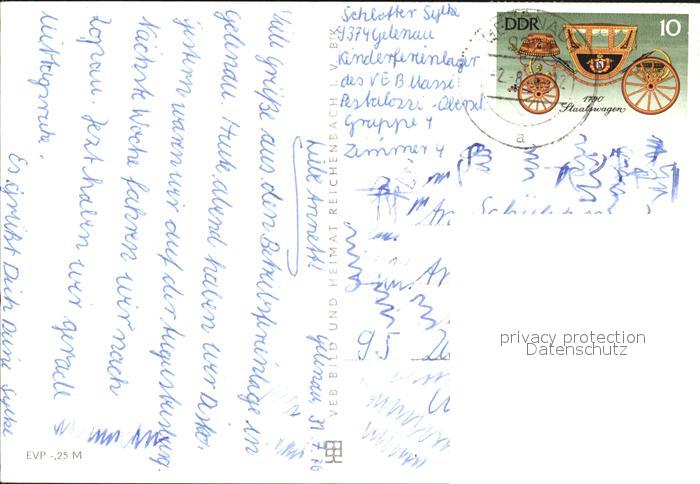 Schlotter Sylke
9374 Gelenau
Kinderferienlager
des VEB Wassi
Pestalozzi-Obersch
Gruppe 4
Zimmer 4
DDR
10
1790
Staatswagen
Gelenau, 31.7.76
Liebe Annett!
Viele Grüße aus dem Betriebsferienlage in
Gelenau. Heute abend haben wir Disko.
Gestern waren wir auf der Augustusburg.
Nächste Woche fahren wir nach
Zopau. Jezt haben wir gerade
Mittagsruhe.
Es grüßt Dich Deine Sylke
VEB BILD UND HEIMAT REICHENBACH I. V. BK
95
EVP -,25 M
privacy protection
Datenschutz